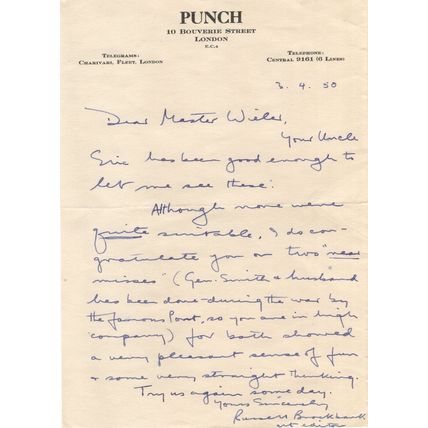 PUNCH
10 BOUVERIE STREET
LONDON
E.C.4
TELEGRAMS:
CHARIVARI, FLEET, LONDON
TELEPHONE:
CENTRAL 9161 (6 LINES)
3. 4. 50
Dear Master
Your Uncle
Eric has been good enough to
let me see these.
Although none were
quite suitable, I do con-
gratulate you on two "near
misses" (Gen. Smith & husband
has been done - during the war by
the famous Pont, so you are in high
company) for both showed
a very pleasant sense of fun
& some very straight thinking.
Try us again some day.
Yours Sincerely
Russell Brockbank
art editor